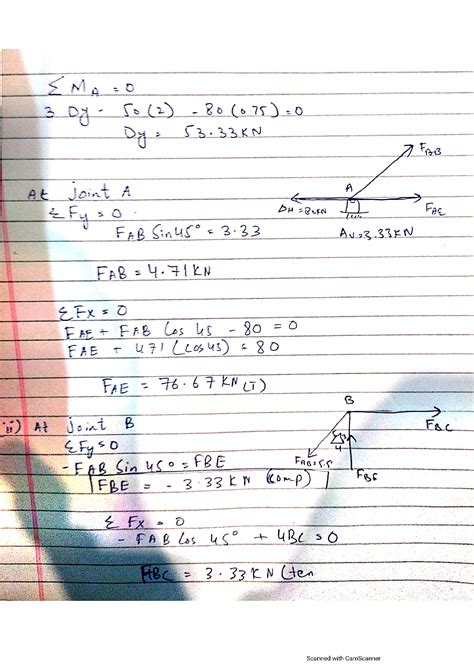 Σ MA = 0
3 Dy - 50(2) - 80(0.75) = 0
Dy = 53.33KN
At joint A
ΣFy = 0
FAB Sin45° = 3.33
FAB = 4.71KN
A
FAE
AV=3.33KN
ΣFx = 0
FAE + FAB Cos 45 - 80 = 0
FAE + 471 (Cos45) = 80
FAE = 76.67KN (T)
ii) At joint B
ΣFy = 0
- FAB Sin 45° = FBE
FBE = - 3.33KN (Comp)
B
FBC
4
Σ Fx = 0
- FAB Cos 45° + 4BC = 0
FBC = 3.33KN (ten
Scanned with CamScanner